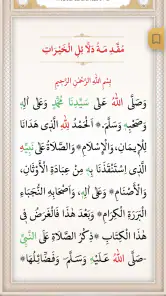 مُقَدِّمَةُ دَلَائِلِ الْخَيْرَاتِ
بِسْمِ اللّٰهِ الرَّحْمٰنِ الرَّحِيْمِ
وَصَلَّى اللّٰهُ عَلٰى سَيِّدِنَا مُحَمَّدٍ وَعَلٰى اٰلِهٖ
وَصَحْبِهٖ وَسَلَّمَ۞ اَلْحَمْدُ لِلّٰهِ الَّذِى هَدَانَا
لِلْاِيْمَانِ۞وَالْاِسْلَامِ۞ وَالصَّلَاةُ عَلٰى نَبِيِّهٖ
الَّذِى اسْتَنْقَذَنَا بِهٖ مِنْ عِبَادَةِ الْاَوْثَانِ،
وَالْاَصْنَامِ۞ وَعَلٰى اٰلِهٖ، وَاَصْحَابِهِ النُّجَبَاءِ
الْبَرَرَةِ الْكِرَامِ۞ وَبَعْدَ هٰذَا فَالْغَرَضُ فِى
هٰذَا الْكِتَابِ ۞ذِكْرُ الصَّلَاةِ عَلَى النَّبِىِّ
-صَلَّى اللّٰهُ عَلَيْهِ وَسَلَّمَ- وَفَضَائِلُهَا۞